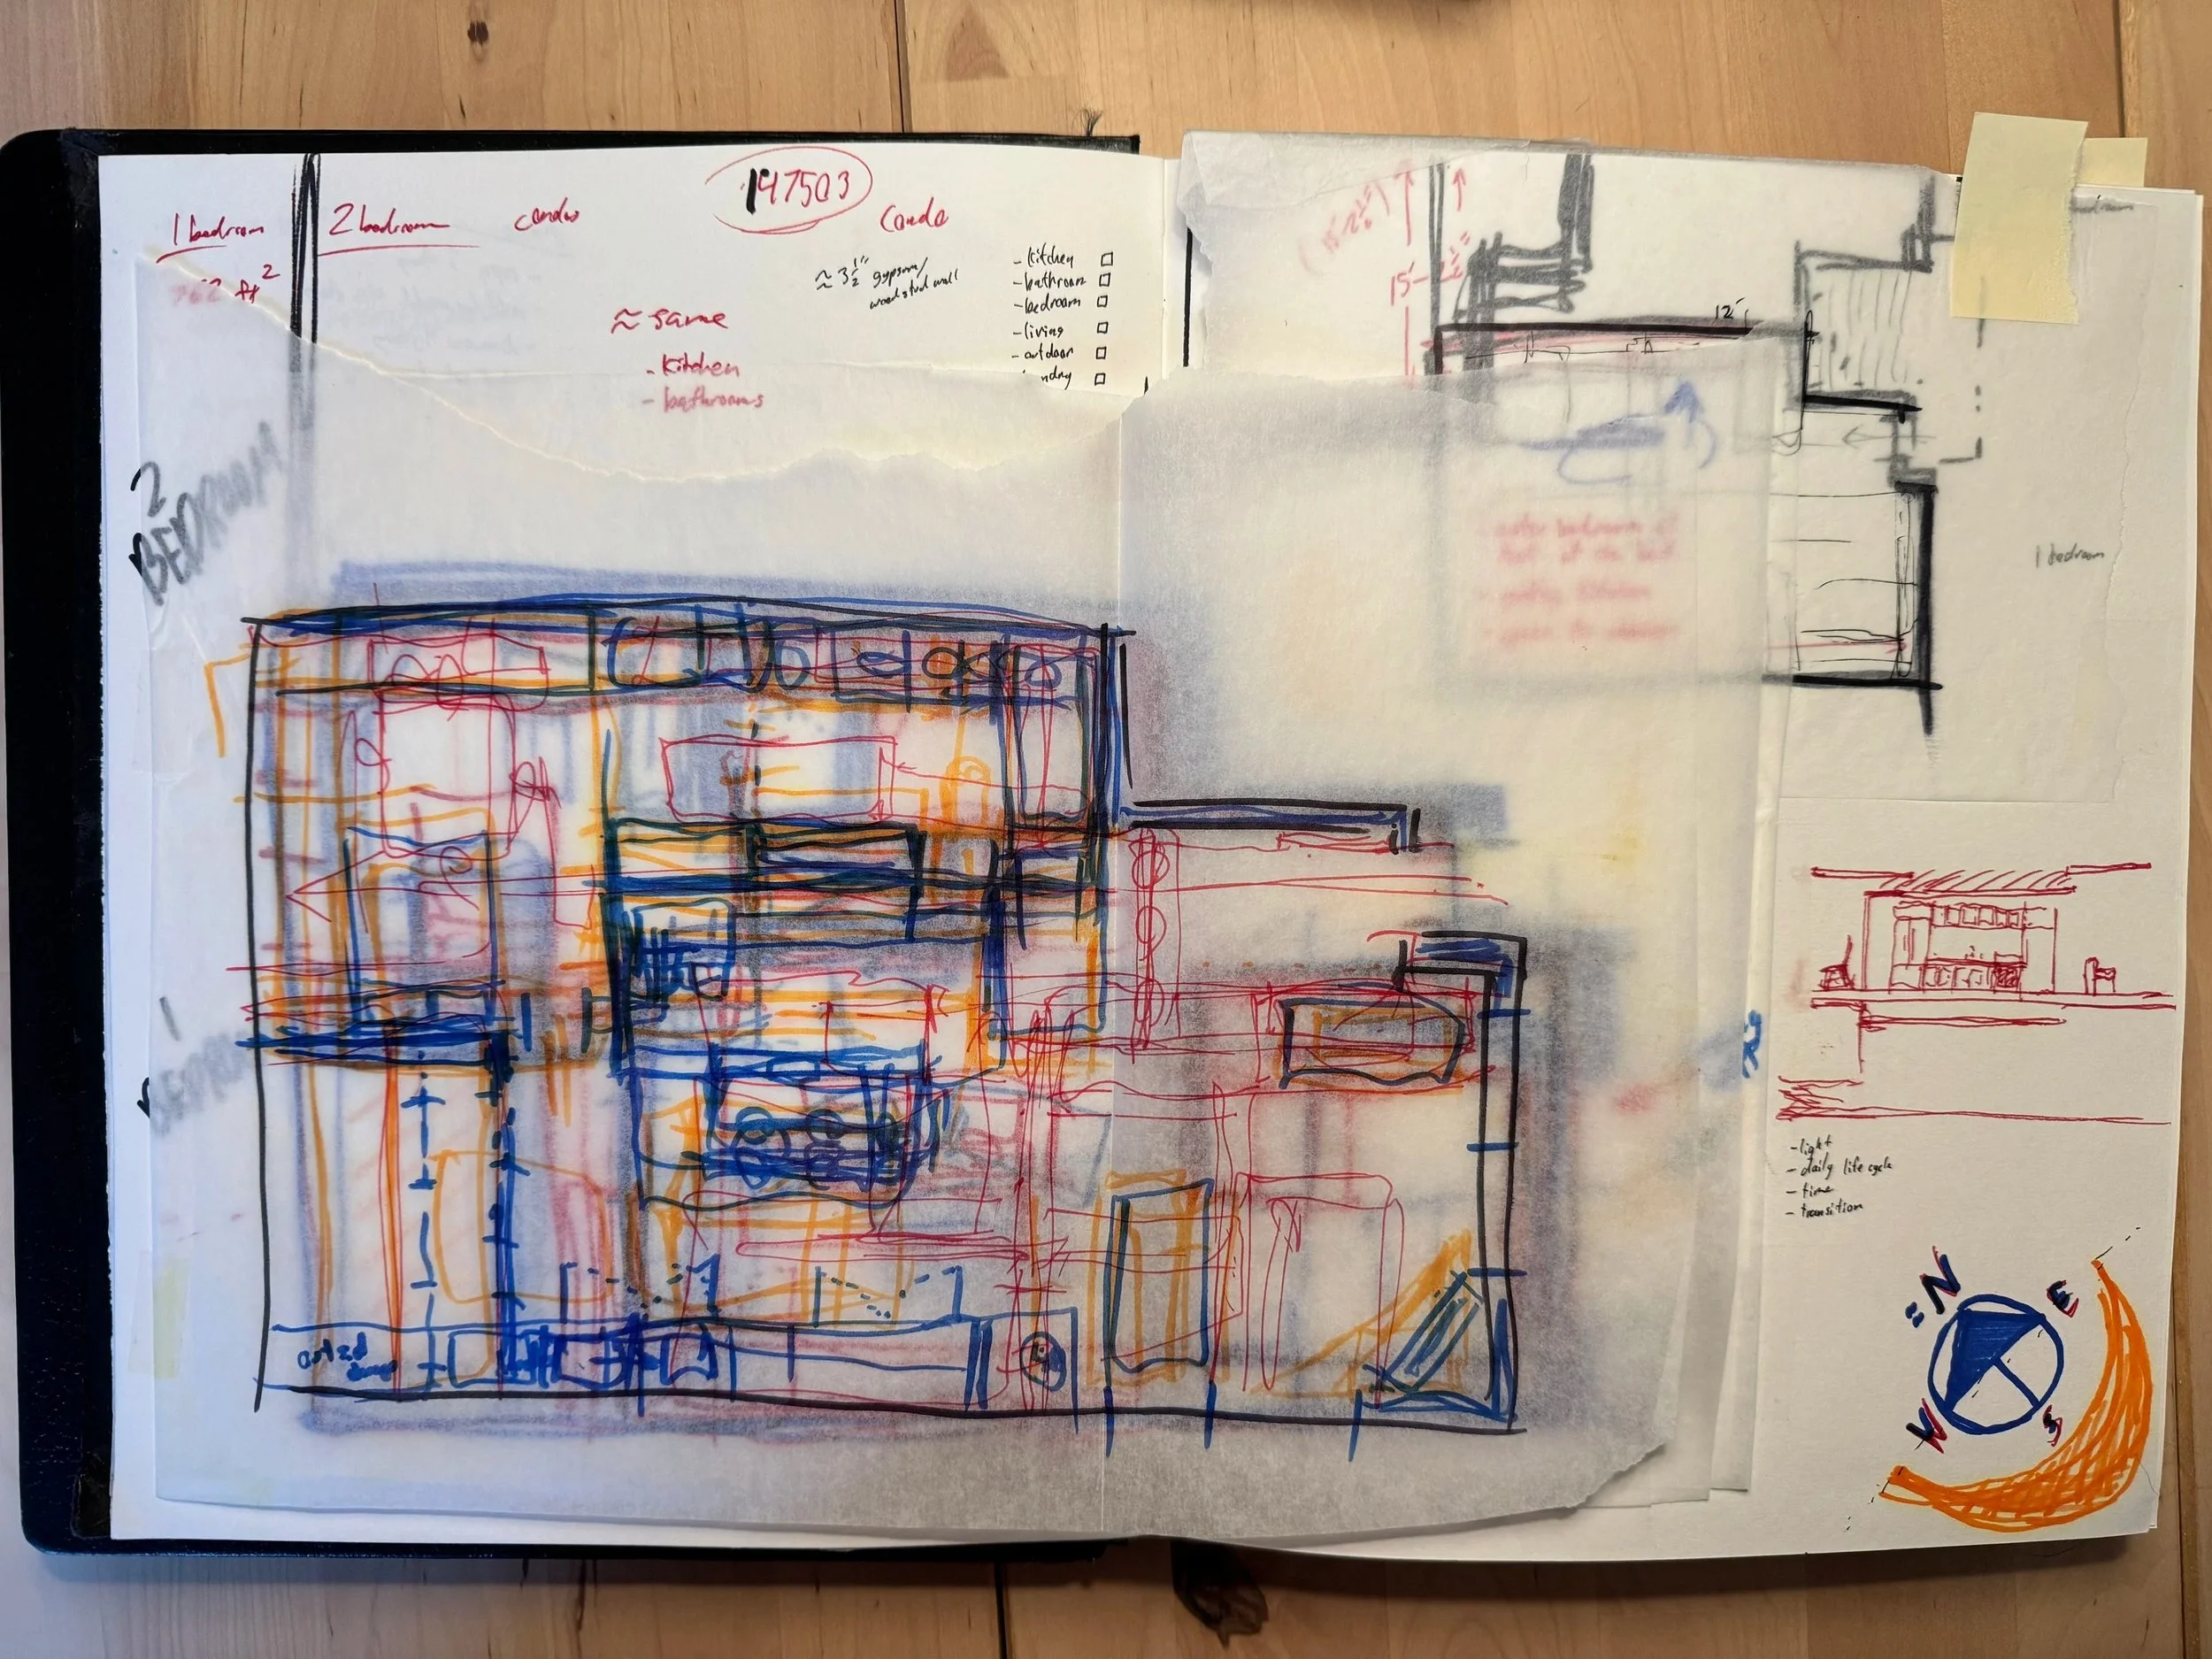 1 bedroom
2 bedroom
condo
147503
Condo
ft²
≈ same
- Kitchen
- bathrooms
≈ 3 1/2" gypsum/
wood stud wall
- kitchen
- bathroom
- bedroom
- living
- outdoor
2
BEDROOM
1
15'-2½"
12'
bedroom
1 bedroom
- light
- daily life cycle
- time
- transition
N
E
W
S